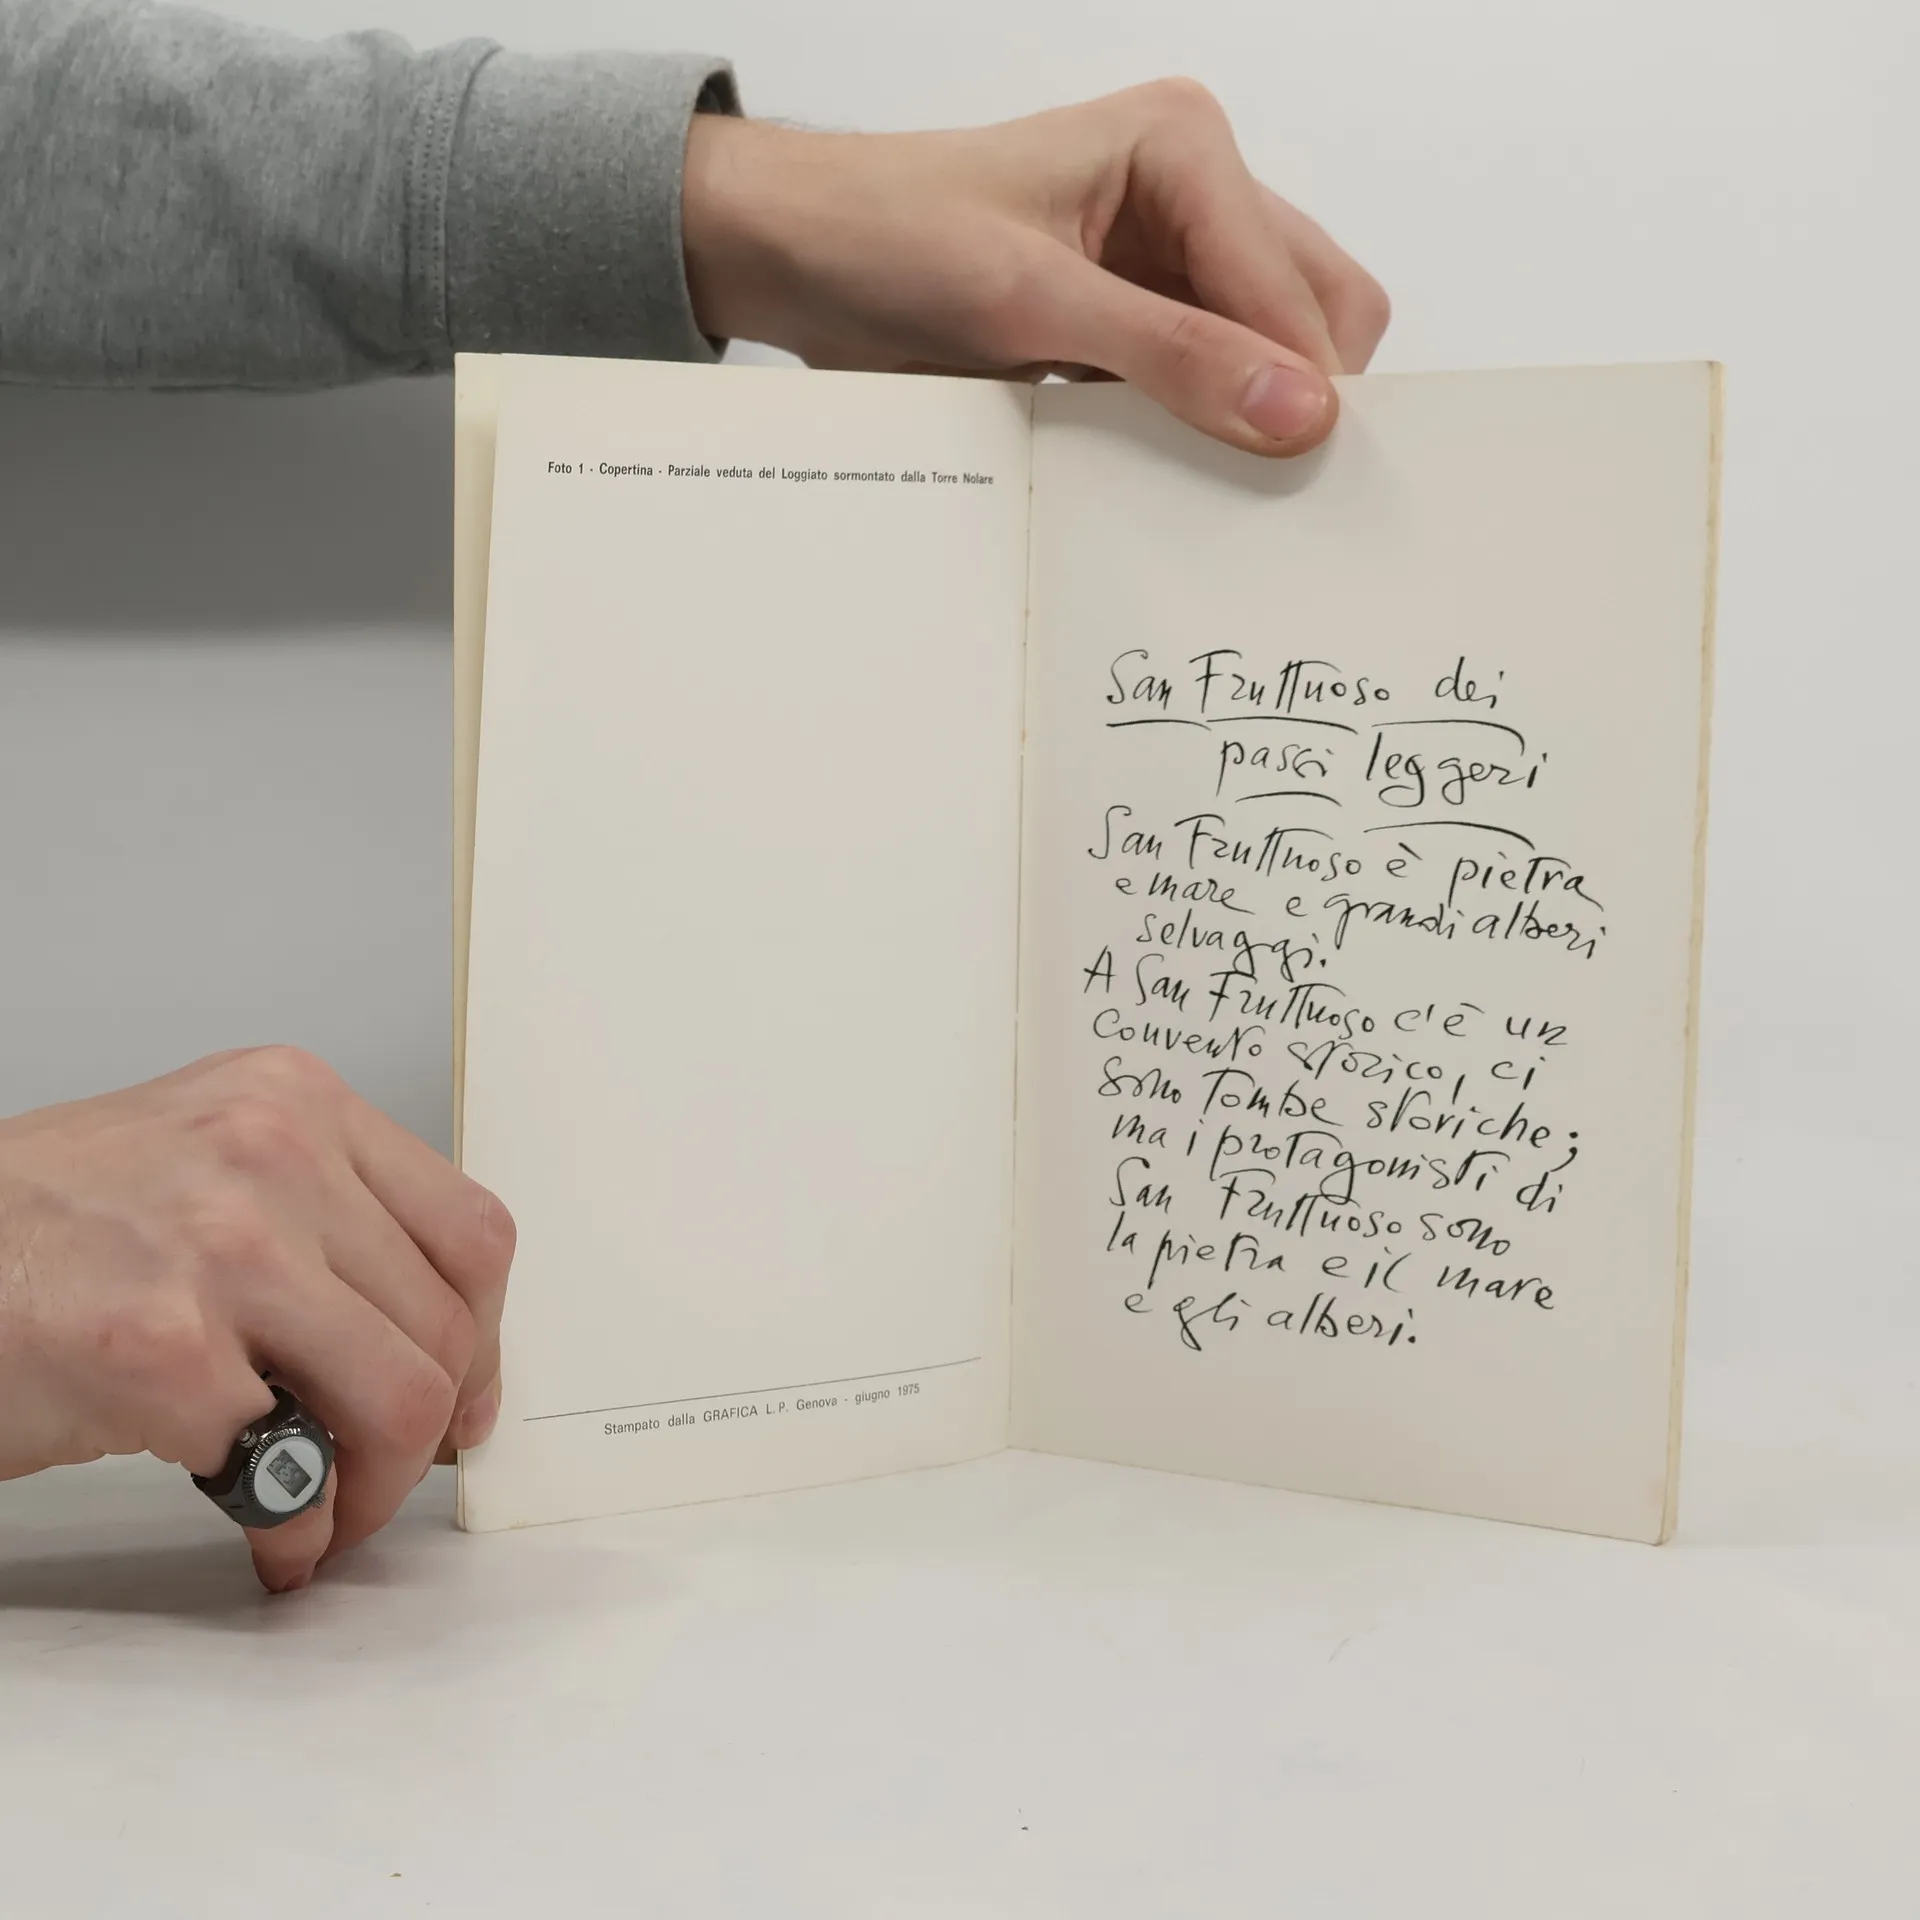 Foto 1 - Copertina - Parziale veduta del Loggiato sormontato dalla Torre Nolare
Stampato dalla GRAFICA L. P. Genova - giugno 1975
San Fruttuoso dei
passi leggeri
San Fruttuoso è pietra
e mare e grandi alberi
selvaggi.
A San Fruttuoso c'è un
convento storico, ci
sono tombe storiche;
ma i protagonisti di
San Fruttuoso sono
la pietra e il mare
e gli alberi.